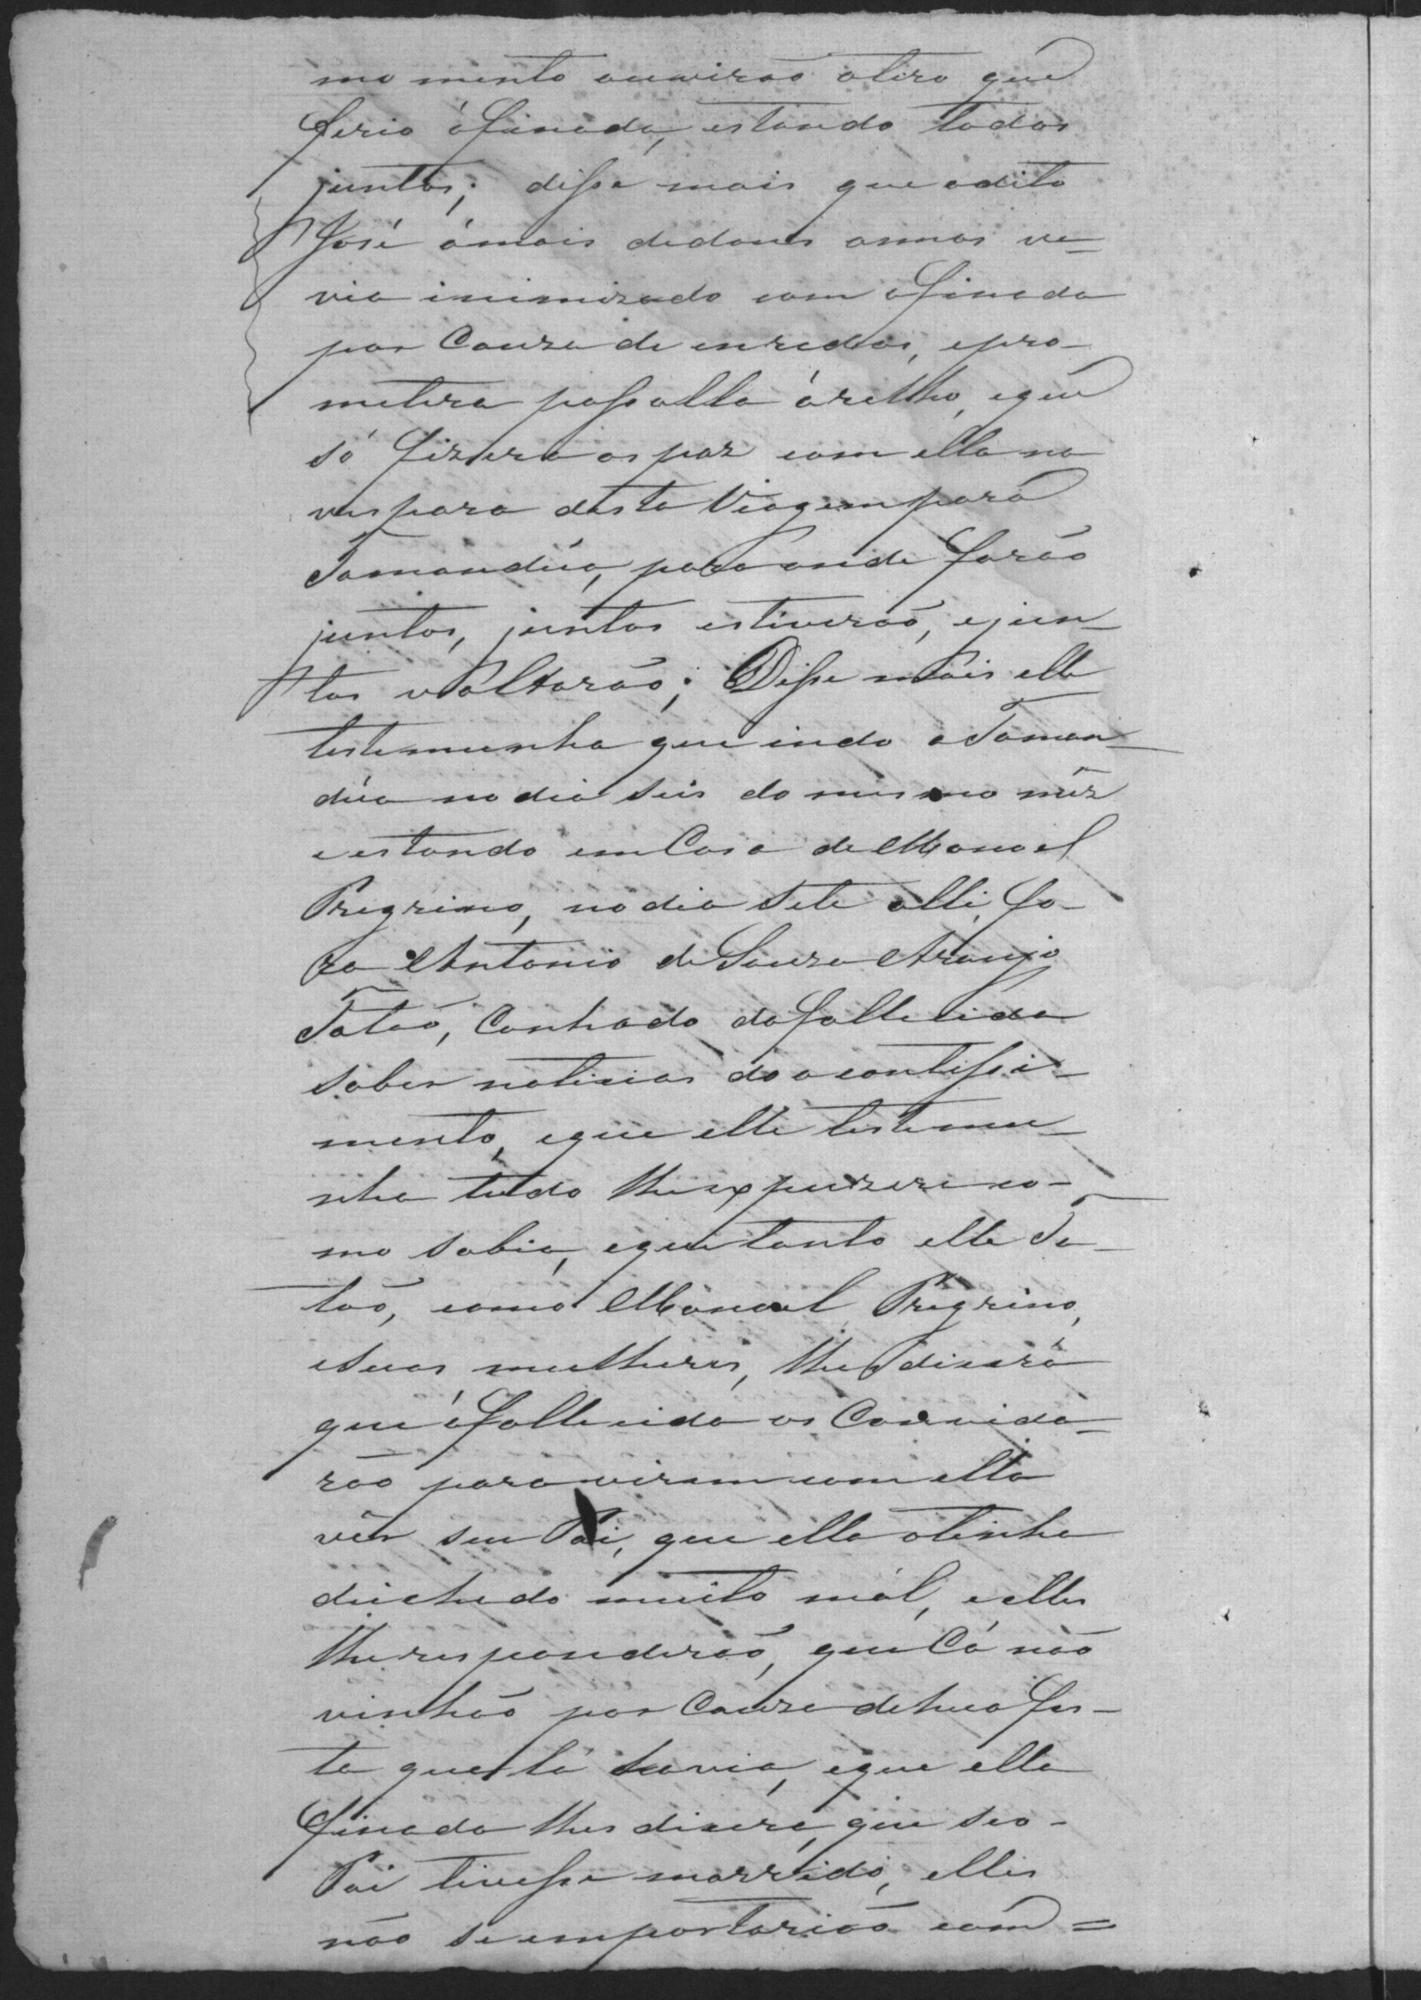 mo mento ouvirão otiro que
ferio áfinada, estando todos
juntos; disse mais que odito
José ámais dedous annos ve=
via inimizado com afinada
por Couza de enredos, epro-
metera passalla órelho, eque
só fizera as paz com ella na
vespara desta Viagem para
Tamanduá, para onde forão
juntos, juntos estiverão, ejun-
tos voltarão; Disse mais elle
testemunha que indo a Taman-
dúa no dia seis do mesmo mêz
e estando em Casa de Manoel
Pregrino, no dia sete alli fo-
ra Antonio de Souza Araujo
Tatão, Cunhado da fallecida
saber noticias do acontissi-
mento, eque elle testemu-
nha tudo lhe expuzera co-
mo sabia, eque tanto elle Ta-
tão, como Manoel Pregrino,
e suas mulheres, lhe dicerã
que áfallecida os Convida=
rão para virem com ella
vêr seu Pai, que ella otinha
deichado muito mál, e elles
lhe responderão, que Cá não
vinhão por Couza de hua fes-
ta que lá havia, eque ella
finada lhes dicera, que seo-
Pai tivesse morrido, elles
não se emportarião com=